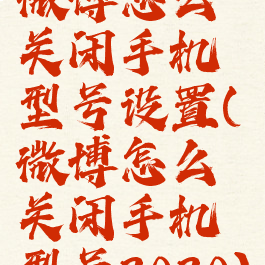 微博怎么
关闭手机
型号设置(
微博怎么
关闭手机
型号2020)